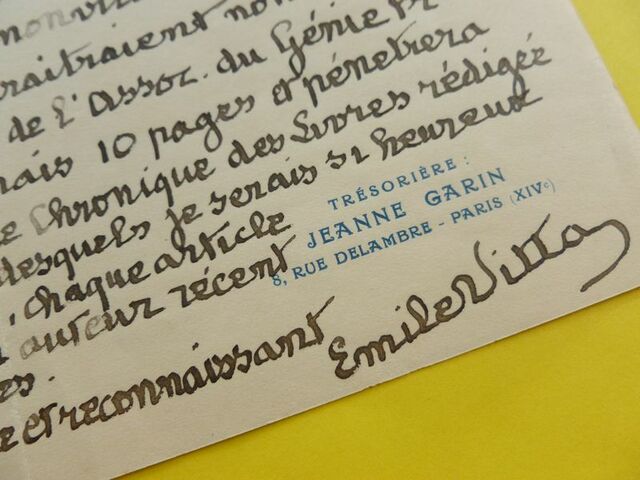 raitraient
de l'Assoc. du Génie
10 pages et pénetrera
Chronique des Livres rédigée
desquels je serais si heureux
chaque article
auteur récent
et reconnaissant
TRÉSORIÈRE :
JEANNE GARIN
8, RUE DELAMBRE - PARIS (XIVe)
Emile Vitta